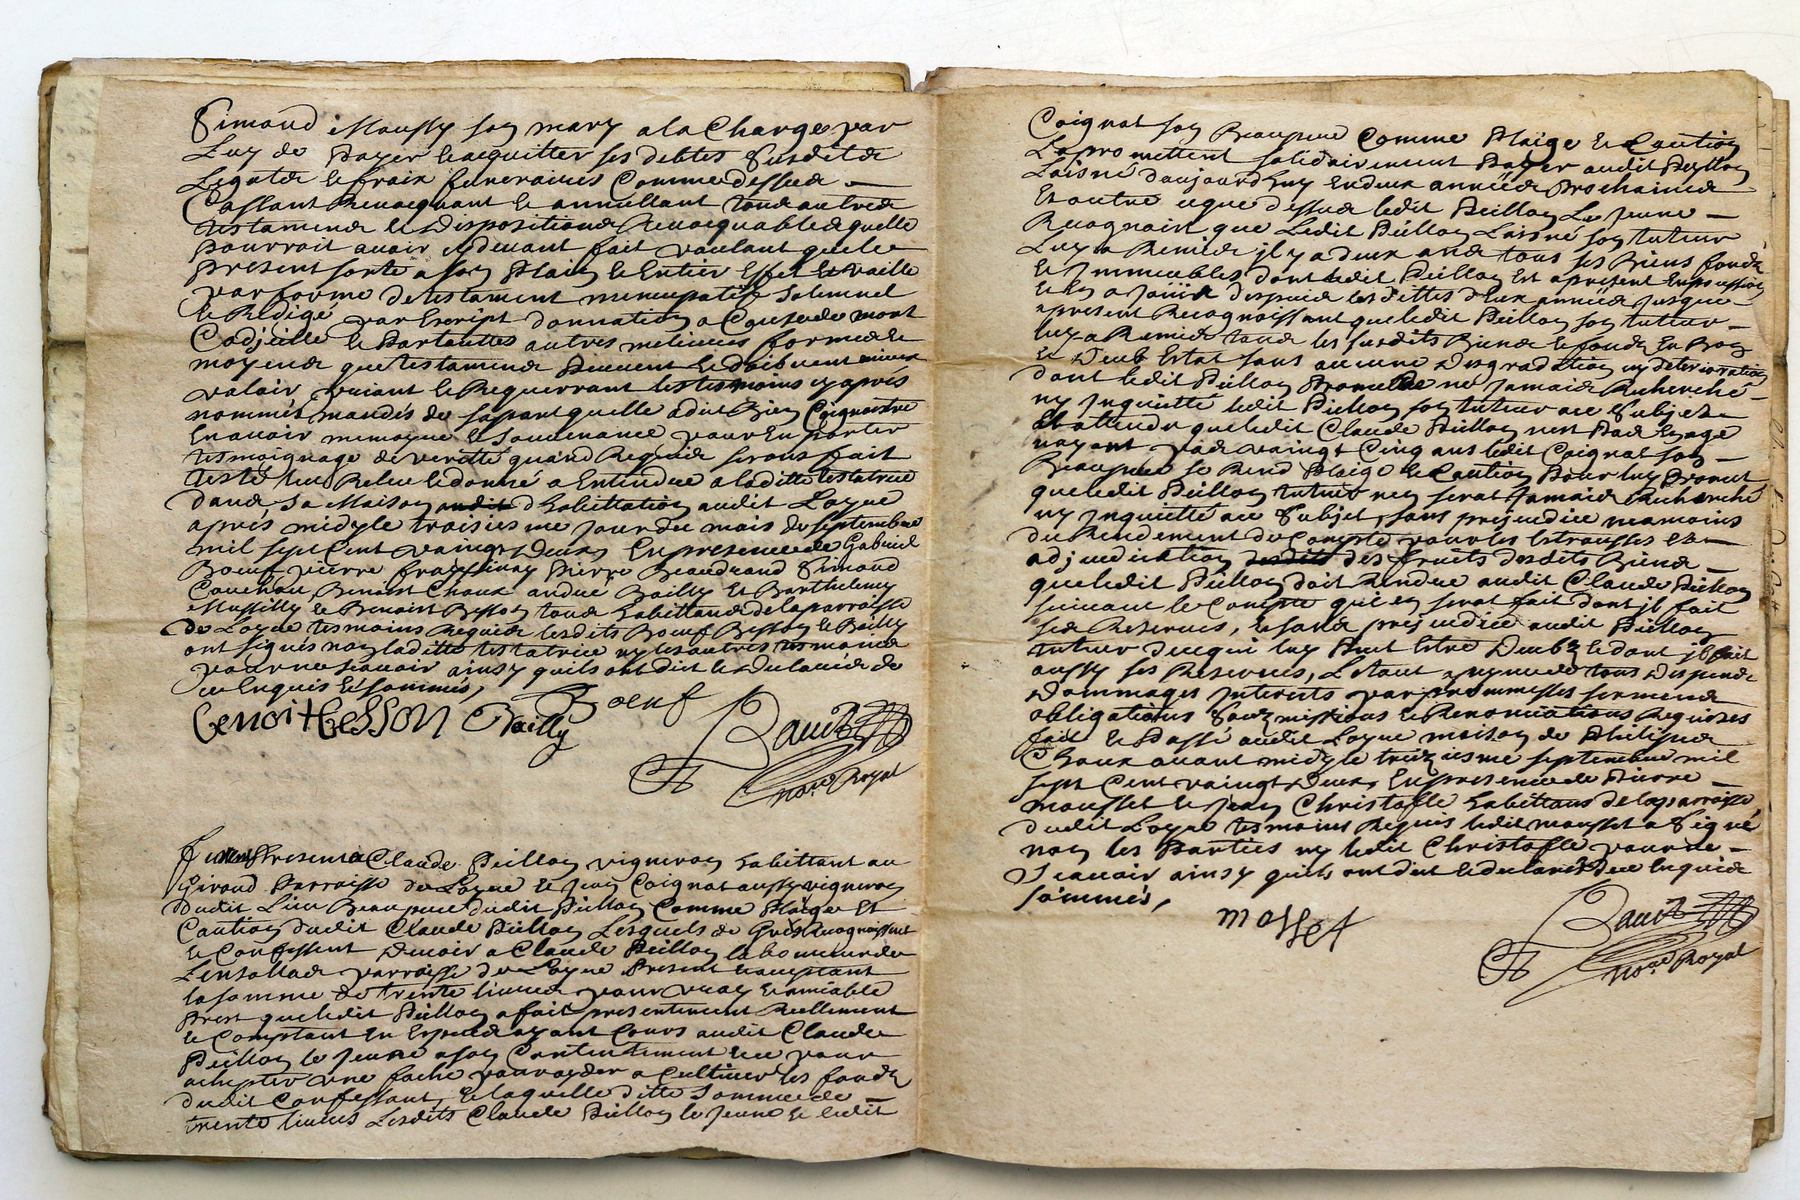 Simond Moussy son mary a la Charge par
Luy de Payer et acquitter ses debtes Susdits
Legats et fraix funeraires Comme dessus
Cassant Revocquant et annullant tous autres
testaments et dispositions Revocquables quelle
pourroit avoir cy devant fait voulant que le
present sorte a son Plain et Entier Effet et vaille
par forme de testament nuncupatif solemnel
et Redigé par Escript donnation a Cause de mort
Codicille et Par toutes autres meilieures formes et
moyens que testaments Peuvent et doibvent mieux
valoir priant et Requerrant les tesmoins cy aprés
nommés mandés de sa part quelle a dit Bien Coignoistre
En avoir memoyre et Souvenance pour En porter
tesmoignage de veritté quand Requis serons fait
testé leu Releu et donné a Entendre a laditte testatrice
dans Sa Maison d'habittation audit Loyse
aprés midy le troisiesme jour du mois de septembre
mil sept Cent vaingt Deux, En presence de Gabriel
Boeuf pierre frayssinay Pierre Beaudrand Simond
Couchou Benoist Choux andré Bailly et Barthelemy
Mussilly et Benoist Besson tous habittans de la parroisse
de Loyse tesmoins Requis lesdits Boeuf Besson et Bailly
ont signés non laditte testatrice ny les autres tesmoins
pour ne sçavoir ainsy quils ont dit et declairés de
ce Enquis et sommés,
Benoit Besson Bailly Boeuf
no.re Royal
furent Presents Claude Peillon vigneron habittant au
Giroud Parroisse de Loyse et Jean Coignat aussy vigneron
dudit Lieu Beaupere dudit Peillon Comme Plaige Et
Caution dudit Claude Peillon Lesquels de Grés Recognoissent
et Confessent Devoir a Claude Peillon laboureur des
parroisse de Loyse Present et acceptant
la somme de trente livres pour vray et amiable
prest que ledit Peillon a fait presentement Reellement
et Comptant En Especes ayant Cours audit Claude
Peillon le Jeune a son Contentement et ce pour
achepter une vache pour ayder a Cultiver les fonds
dudit Confessant, et laquelle ditte Somme de
trente livres Lesdits Claude Peillon le Jeune et ledit
Coignat son Beaupere Comme Plaige et Caution
Le promettent solidairement Payer audit Peillon
Laisné d'aujourd'huy En deux années Prochaines
Et outre ce que dessus ledit Peillon Le Jeune
Recognoit que Ledit Peillon Laisné son tuteur
Luy a Remis il y a deux ans tous ses Biens fonds
et Immeubles dont ledit Peillon Est a present En possession
et En a Jouÿs despuis lesdittes deux années Jusques
a present Recognoissant que ledit Peillon son tuteur
luy a Remis tous les susdits Biens et fonds En Bon
et Deub Estat sans aucune Degradation ny deterioration
dont ledit Peillon Promet ne Jamais Recherché
ny Inquietté ledit Peillon son tuteur au Subjet
Et attendu que ledit Claude Peillon n'est Pas En age
nayant pas vaingt Cinq ans ledit Coignat son
Beaupere se Rend Plaige et Caution Pour luy Promet
que ledit Peillon tuteur n'en serat Jamais Recherché
ny Inquietté au Subjet, sans prejudice neamoins
du Rendement de Compte pour les Estrousses et
adjudication des fruits desdits Biens
que ledit Peillon doit Rendre audit Claude Peillon
suivant le Compte qui en serat fait dont il fait
ses Reserves, et sans prejudice audit Peillon
tuteur de ce qui luy Peut Estre Deub et dont il fait
aussy ses Reserves, Le tout a peyne de tous Despends
Dommages Interests par promesses serments
obligations Soubmissions et Renonciations Requises
fait et Passé audit Loyse maison de Philippe
Choux avant midy le treiziesme septembre mil
sept Cent vaingt Deux, En presence de Pierre
mousset et Jean Christofle habittans de la parroisse
dudit Loyse tesmoins Requis ledit mousset a Signé
non les Parties ny ledit Christofle pour ne
Sçavoir ainsy quils ont dit et declairés de ce Enquis
sommés,
mosset
no.re Royal